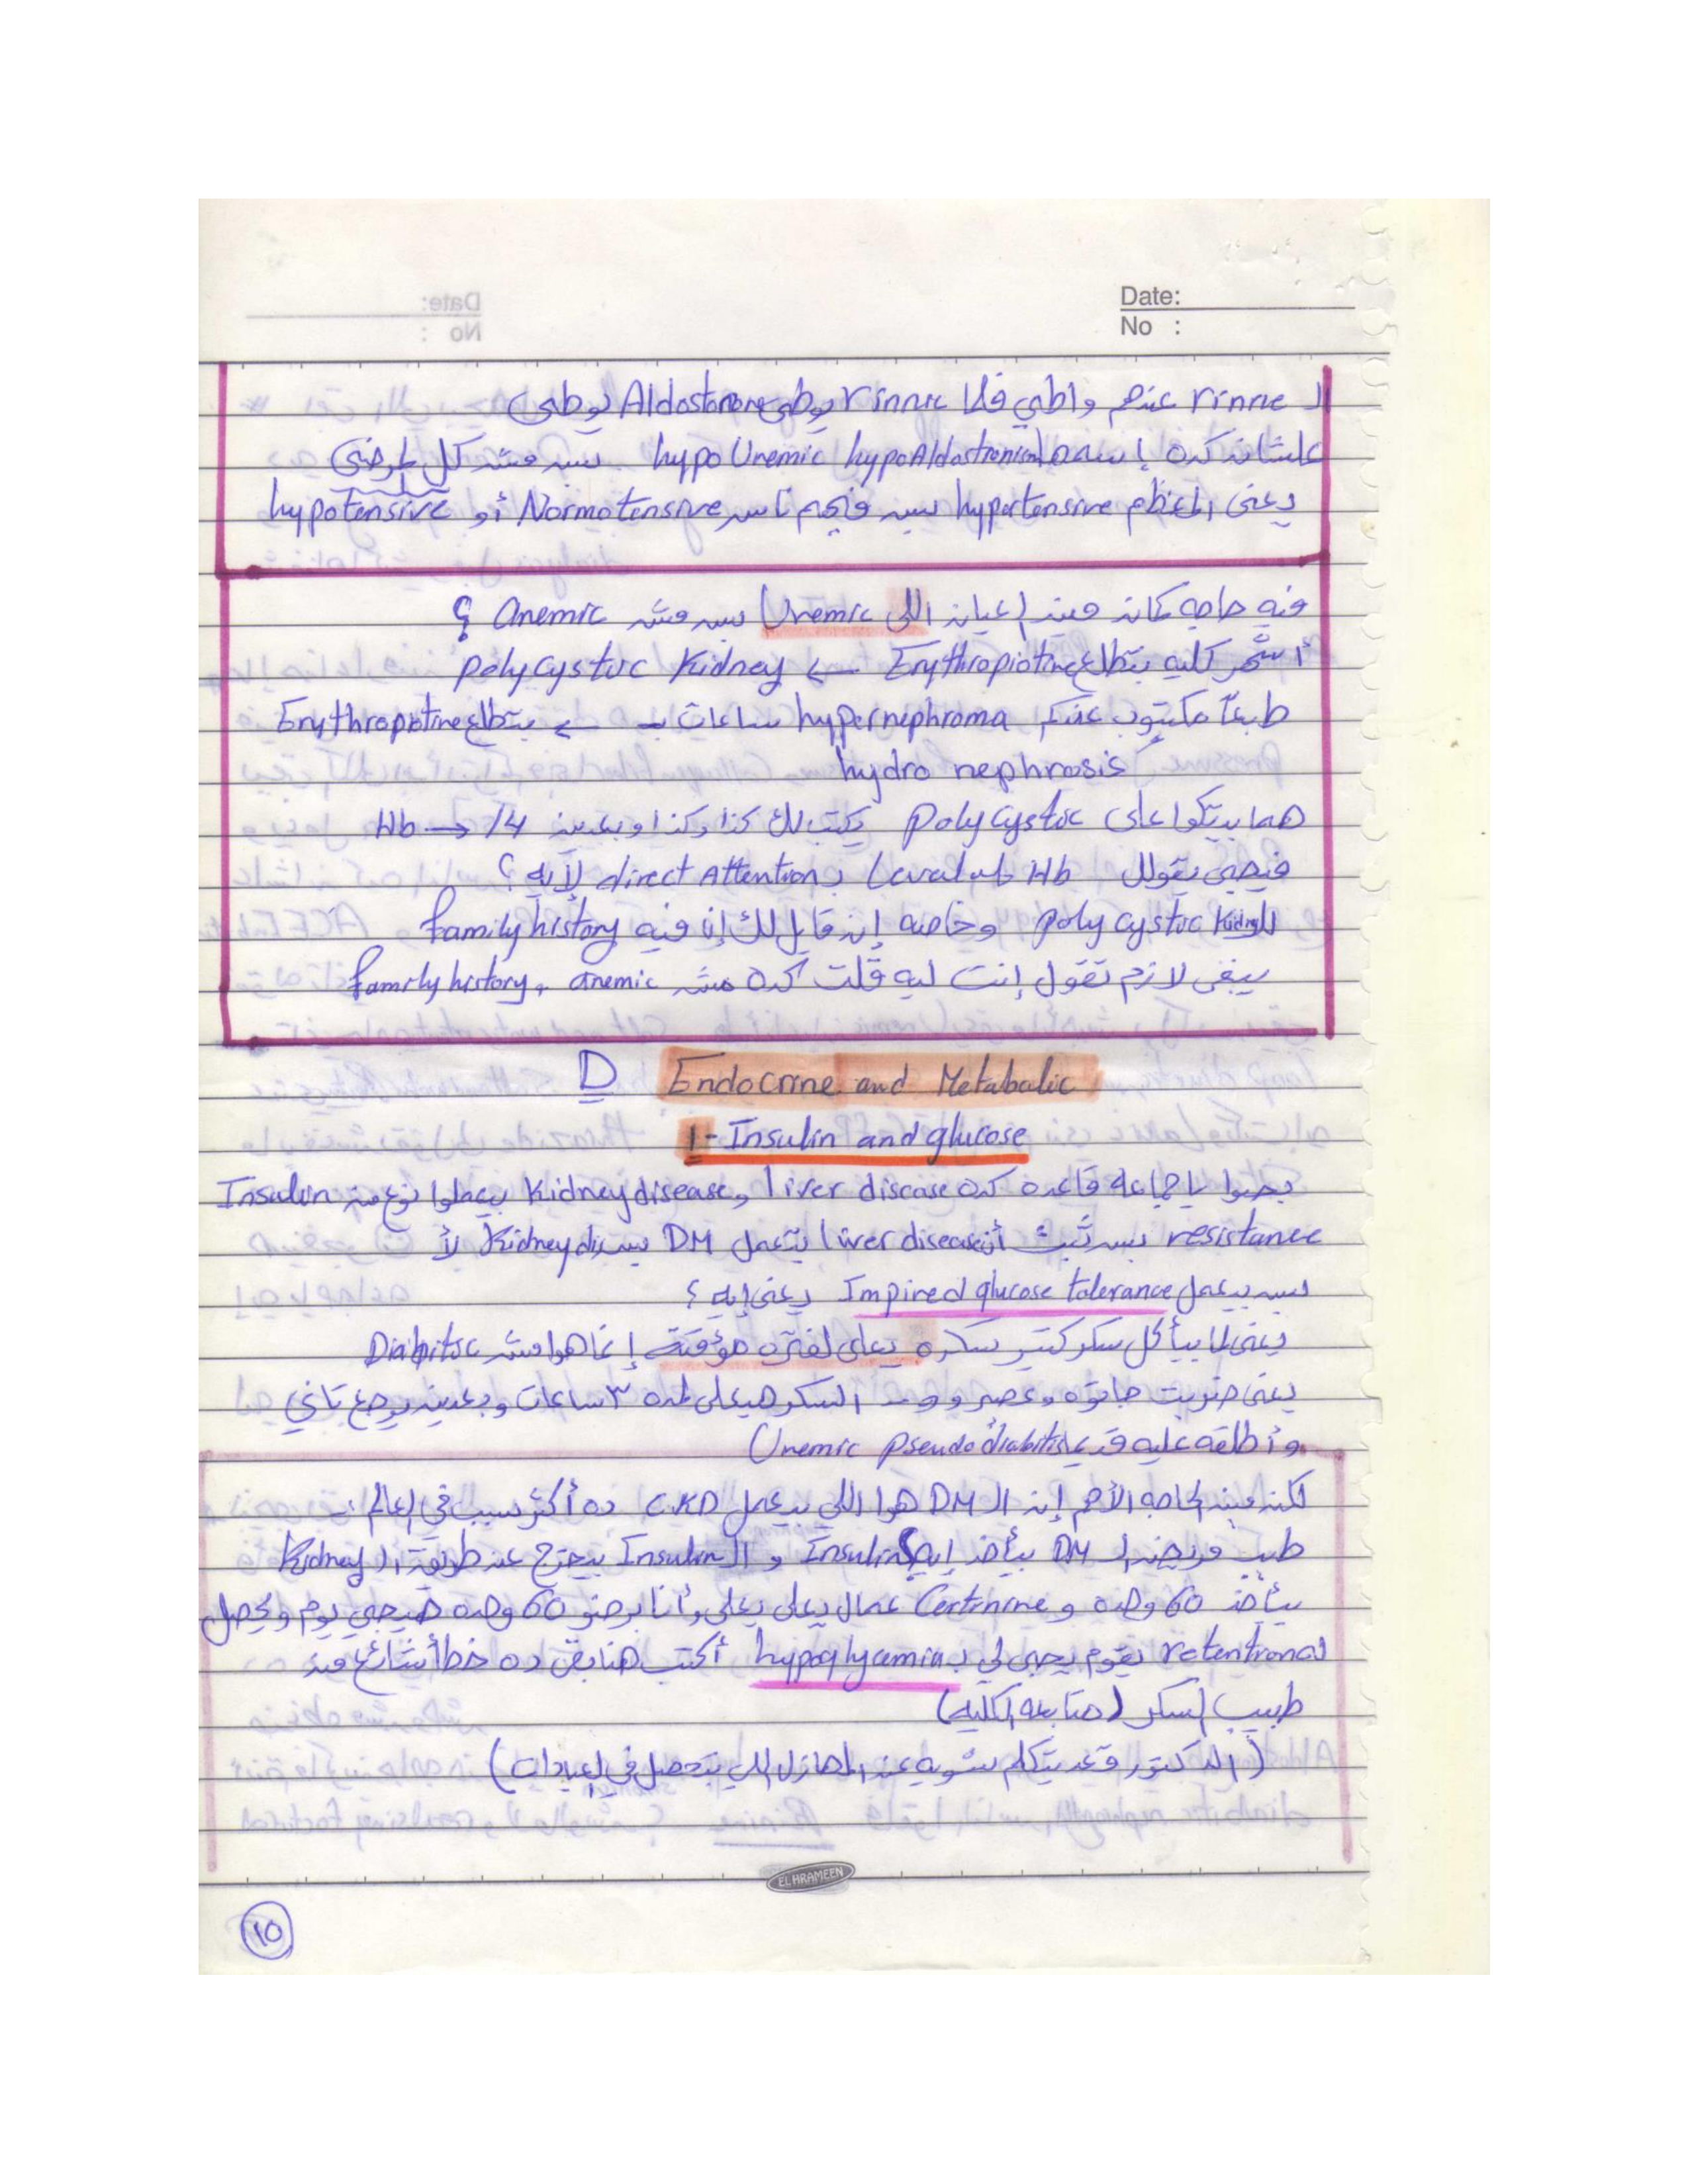 Date:
No :
الـ rinne عندهم واطي فلما rinne يوطى Aldosterone يوطى
علشان كده إسمه hypo Uremic hypoAldostronism بس مش كل المرضى
يعنى المعظم hypertensive بس فيهم ناس Normotensive أو hypotensive
فيه حاجه كمان مين العيان اللى Uremic بس مش Anemic ؟
أشهر كليه بتطلع Erythropiotine ← polycystic Kidney
طبعاً مكتوب عندكم hypernephroma ساعات ← بتطلع Erythropiotine
hydro nephrosis
هما بيتكوا على polycystic يكتب لك كذا وكذا وبعدين Hb → 14
فيجى يقولك Level ub Hb بـ direct Attention لأيه ؟
للـ poly cystic Kidney وخاصه إن قايل لك إن فيه family history
يبقى لازم تقول إنت ليه قلت كده مش anemic و family history
D Endocrine and Metabalic
1- Insulin and glucose
بصوا يا جماعه قاعده كده liver disease و Kidney disease بيعملوا نوع من Insulin
resistance بس ثبت أن liver disease بتعمل DM بس Kidney dis لأ
بس بيعمل Impired glucose tolerance يعنى إيه ؟
يعنى لما بيأكل سكر كتير سكره يعلى لفتره مؤقتة إنما هوا مش Diabitic
يعنى ضربت جاتوه وعصير و السكر هيعلى لمده ٣ ساعات وبعدين يرجع تاني
وأطلقه عليه قديما Uremic pseudo diabitis
لكن فيه الحاجه الأهم إن الـ DM هوا اللي بيعمل CKD ده أكتر سبب في العالم :
طيب مريض الـ DM بيأخد إيه؟ Insulin و الـ Insulin بيخرج عن طريق الـ Kidney
بيأخد 60 وحده و Certinine عمال يعلى يعلى وأنا برضو 60 وحده هيجي يوم ويحصل
له retention يقوم يجى لي بـ hypoglycemia أكتب هنا بقى ده خطأ شائع من
طبيب السكر (متابعه الكليه)
(الدكتور قعد يتكلم شويه عن المهازل اللى بتحصل فى العيادات)
EL HRAMEEN
10